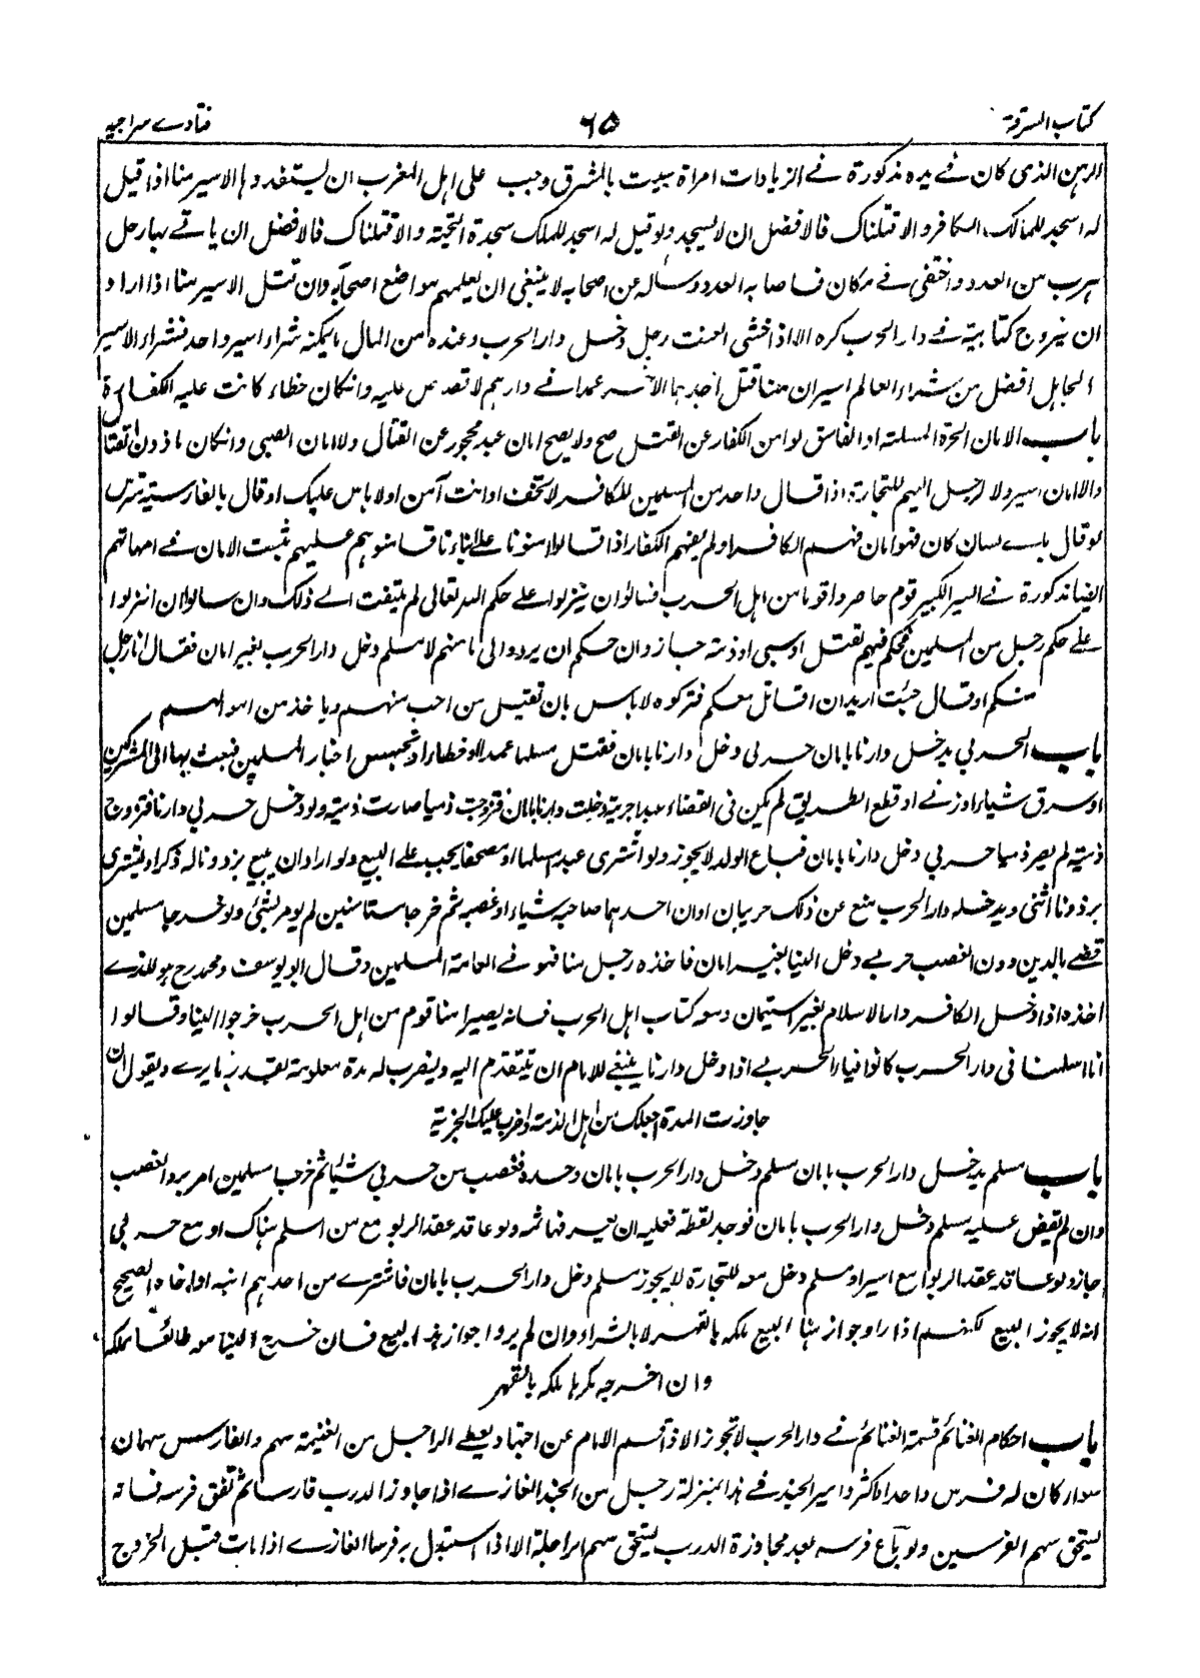 كتاب السرقة ٦٥ فتاوے سراجيه
الرهن الذى كان فے يده مذكورة فے الزيادات امراة سبيت بالمشرق وجب على اهل المغرب ان يستنقذوها الاسير منا اذا قيل
له اسجد للمالك الكافر والا قتلناك فالافضل ان لا يسجد ولو قيل له اسجد للملك سجدة التحية والا قتلناك فالافضل ان ياتے بها رجل
هرب من العدو واختفى فے مكان فاصابه العدو وساله عن اصحابه لا ينبغى ان يعلمهم مواضع اصحابه وان قتل الاسير منا اذا اراد
ان يتزوج كتابية فے دار الحرب كره الا اذا خشى العنت رجل دخل دار الحرب وعنده من المال ما يمكنه شراء اسير واحد فشراء الاسير
الجاهل افضل من شراء العالم اسيران منا قتل احدهما الآخر عمدا فے دارهم لا قصاص عليه وان كان خطاء كانت عليه الكفارة
باب الامان الحرة المسلمة او الفاسق لو امن الكفار عن القتل صح ولا يصح امان عبد محجور عن القتال ولا امان الصبى وان كان ماذون القتال
ولا امان اسير ولا لرجل اليهم للتجارة اذا قال واحد من المسلمين للكافر لا تخف او انت آمن او لا باس عليك او قال بالفارسية مترس
لو قال باے لسان كان فهو امان فهم الكافر او لم يفهم الكفار اذا قالوا امنونا علے ابناءنا فامنوهم عليهم ثبت الامان فے امهاتهم
ايضا مذكورة فے السير الكبير قوم حاصروا قوما من اهل الحرب فسالوا ان ينزلوا علے حكم الله تعالى لم يلتفت الے ذلك وان سالوا ان انزلوا
علے حكم رجل من المسلمين فحكم فيهم بقتل او سبى او ذمة جاز وان حكم ان يردوا الى مامنهم لا مسلم دخل دار الحرب بغير امان فقال انا رجل
منكم او قال جئت اريد ان اقاتل معكم فتركوه لا باس بان يقتل من احب منهم وياخذ من اموالهم
باب الحربى يدخل دارنا بامان حربى دخل دارنا بامان فقتل مسلما عمدا او خطاء او تجسس اخبار المسلمين فبعث بها الى المشركين
او سرق شياء او زنے او قطع الطريق لم يكن فى القضاء عبدا حربية دخلت دارنا بامان فتزوجت ذميا صارت ذمية ولو دخل حربى دارنا فتزوج
ذمية لم يصر ذميا حربى دخل دارنا بامان فباع الولد لا يجوز ولو اشترى عبدا مسلما او مصحفا يجب علے البيع ولو اراد ان يبيع برذونا له ذكرا ويشترى
برذونا انثى ويدخله دار الحرب منع عن ذلك حربيان ادان احدهما صاحبه شياء او غصبه ثم خرجا مستامنين لم يؤمر بشئ ولو خرجا مسلمين
قضے بالدين دون الغصب حربے دخل الينا بغير امان فاخذه رجل منا فهو فے لعامة المسلمين وقال ابو يوسف ومحمد رح هو للذے
اخذه اذا دخل الكافر دار الاسلام بغير استيمان ومعه كتاب اهل الحرب فانه يصير امنا قوم من اهل الحرب خرجوا الينا وقالوا
انا اسلمنا فى دار الحرب كانوا فيا الحربے اذا دخل دارنا ينبغے للامام ان يتقدم اليه ويضرب له مدة معلومة بقدر ما يرے ويقول ان
جاوزت المدة اجعلك من اهل الذمة واضرب عليك الجزية
باب مسلم يدخل دار الحرب بامان مسلم دخل دار الحرب بامان وحده فغصب من حربى شيئا ثم خرجا مسلمين امر برد الغصب
وان لم يقض عليه مسلم دخل دار الحرب بامان فوجد لقطة فعليه ان يعرفها ثمه ولو عاقد عقد الربو مع من اسلم هناك او مع حربى
جاز ولو عاقد عقد الربوا مع اسير او مسلم دخل معه للتجارة لا يجوز مسلم دخل دار الحرب بامان فاشترے من احدهم ابنه او اخاه الصحيح
انه لا يجوز البيع لكنهم اذا راوا جواز هذا البيع ملكه بالقهر لا بالشراء وان لم يروا جواز هذا البيع فان خرج الينا معه طائعا ملكه
وان اخرجه كرها ملكه بالقهر
باب احكام الغنائم قسمة الغنائم فے دار الحرب لا تجوز الا اذا قسم الامام عن اجتهاد يعطے الراجل من الغنيمة سهم والفارس سهمان
سواء كان له فرس واحد او اكثر وامير الجند فے هذا بمنزلة رجل من الجند الغازے اذا جاوز الدرب فارسا ثم نفق فرسه فانه
يستحق سهم الفرسين ولو باع فرسه بعد مجاوزة الدرب يستحق سهم الراجلة الا اذا استبدل به فرسا الغازے اذا مات قبل الخروج